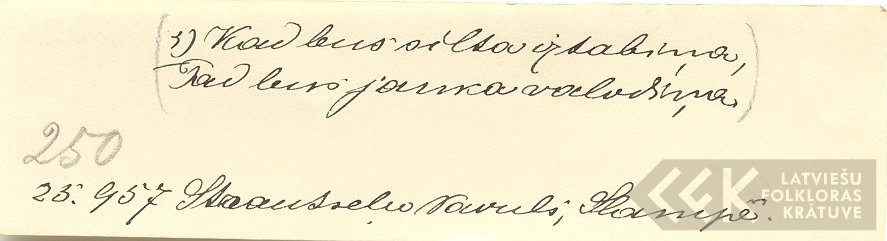 (3) Kad bus silta iztabiņa,
Tad bus jauka valodiņa.)
250
25. 957 Strautseļu Pavuls, Slampē.
LATVIEŠU
FOLKLORAS
KRĀTUVE